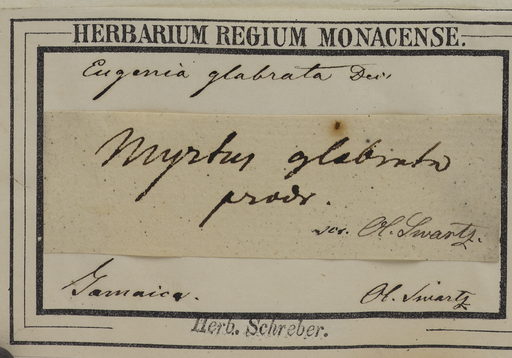 HERBARIUM REGIUM MONACENSE.
Eugenia glabrata Dec.
Myrtus glabrata
prodr.
scr. Ol. Swartz.
Jamaica. Ol. Swartz
Herb. Schreber.